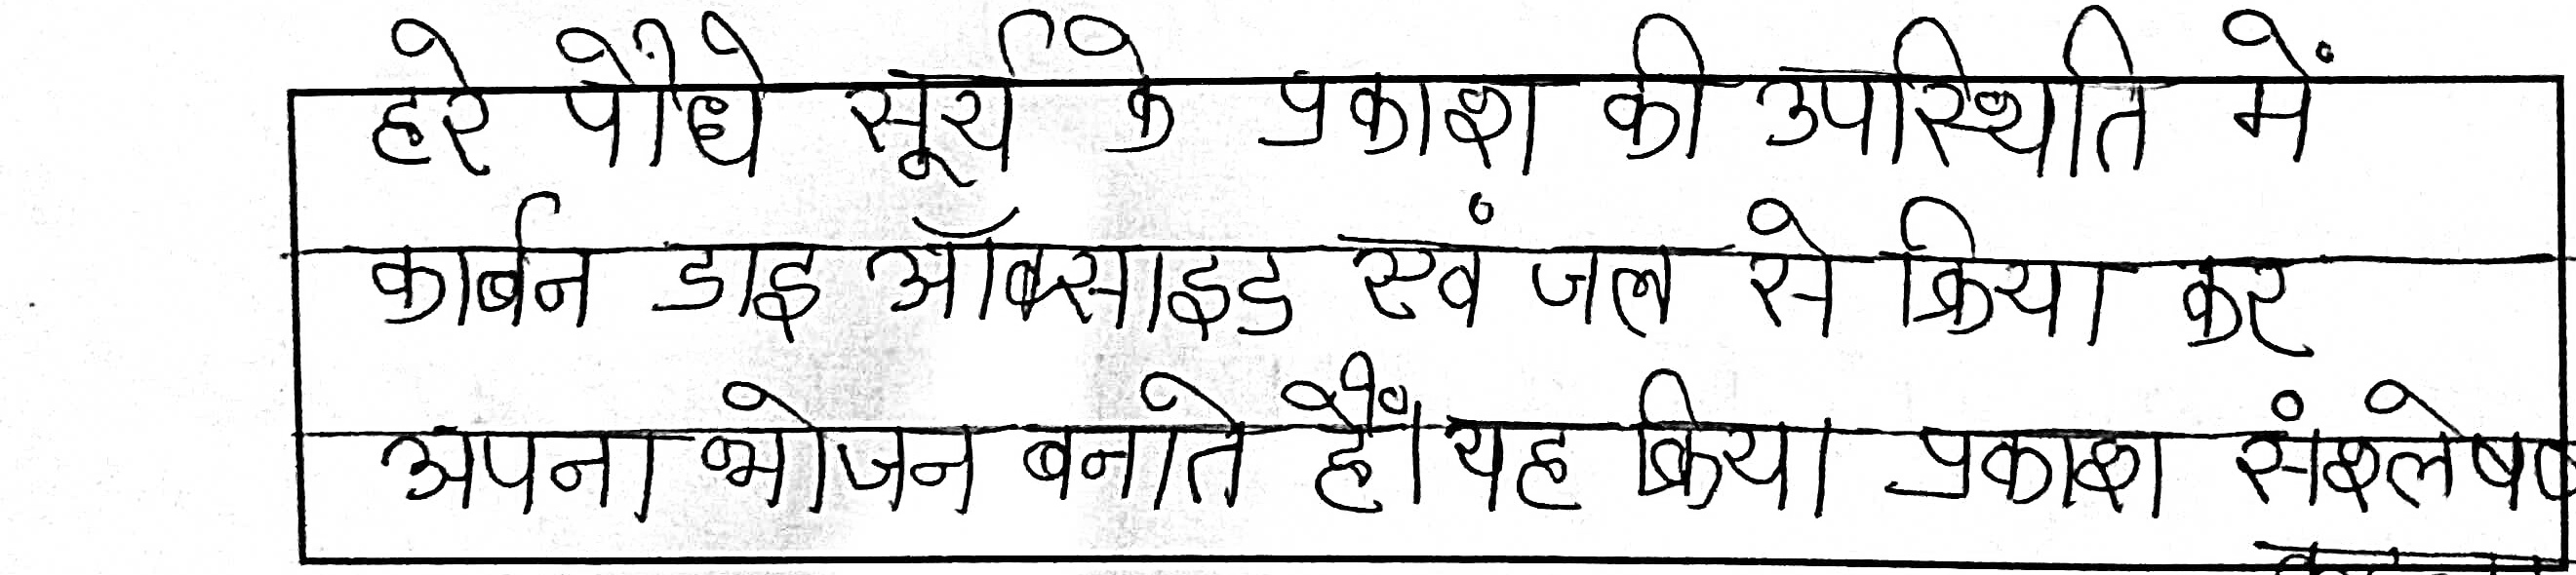 हरे पौधे सूर्य के प्रकाश की उपस्थिति में
कार्बन डाइ ऑक्साइड एवं जल से क्रिया कर
अपना भोजन बनाते हैं। यह क्रिया प्रकाश संश्लेषण